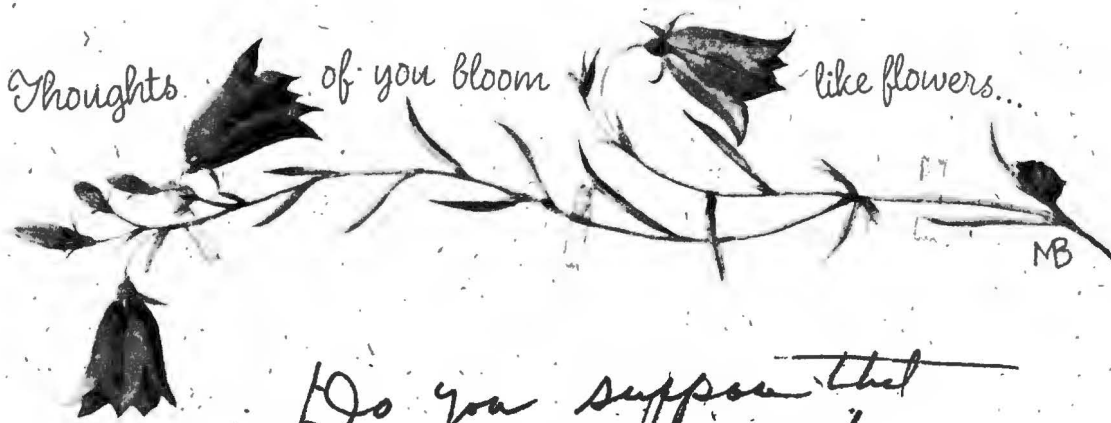 Thoughts of you bloom like flowers...
MB
Do you suppose that